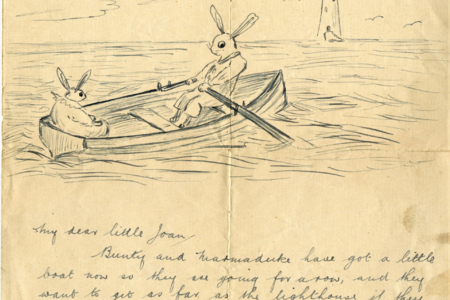 My dear little Joan
Bunty and Marmaduke have got a little
boat now so they are going for a row, and they
want to get as far as the lighthouse if they